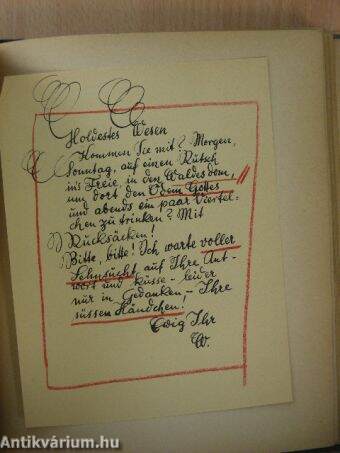 Holdestes Wesen
Kommen Sie mit? Morgen,
Sonntag, auf einen Rutsch
ins Freie, in den Waldesdom,
um dort den Odem Gottes
und abends ein paar Viertel-
chen zu trinken? Mit
Rucksäcken!
Bitte, bitte! Ich warte voller
Sehnsucht auf Ihre Ant-
wort und küsse – leider
nur in Gedanken – Ihre
süssen Händchen!
Ewig Ihr
W.
Antikvárium.hu